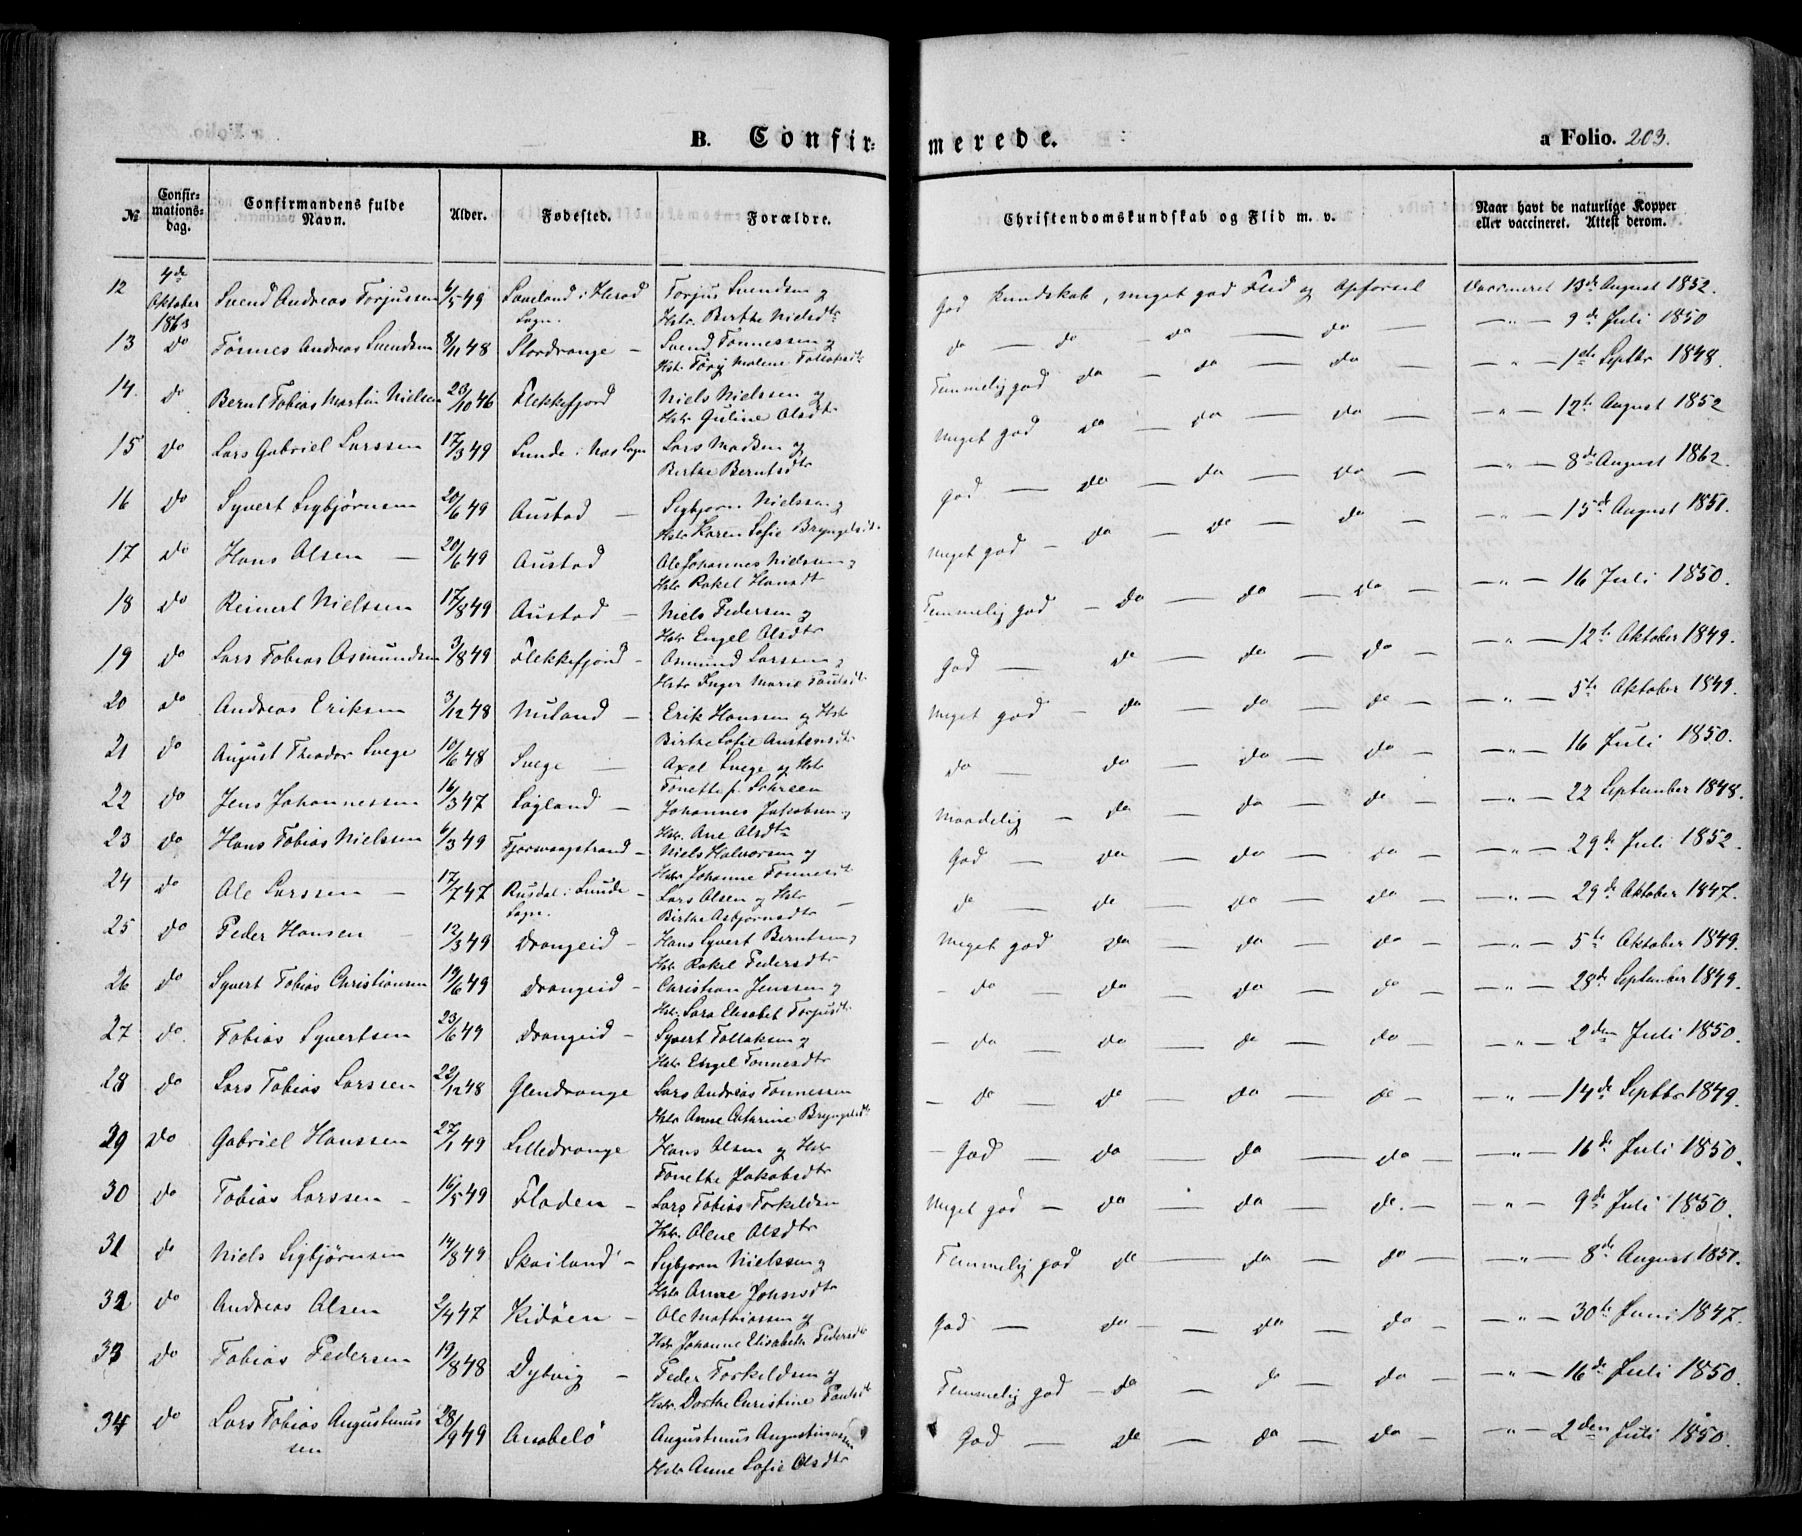 B. Confirmerede.
a Folio. 203.
№ Confirmationsdag. Confirmandens fulde Navn. Alder. Fødested. Forældre. Christendomskundskab og Flid m. v. Naar havt de naturlige Kopper eller vaccineret. Attest derom.
12 4de Oktober 1863 Svend Andreas Torjussen 6/5 49 Saveland i Herad Sogn. Torjus Svendsen og Hstr. Birthe Nielsdtr God Kundskab, meget god Flid og Opførsel Vaccineret 13de August 1852.
13 do Tønnes Andreas Svendsen 8/11 48 Stordrange – Svend Tønnessen og Hstr. Malene do — do — do — do — „ — 9de Juli 1850
14. do Bernt Tobias Martin Nielsen 23/10 46 Flekkefjord Niels Nielssen og Hstr Guline Olsdtr Temmelig god do — do — do — „ — 1ste Septbr 1848.
15 do Lars Gabriel Larssen 17/3 49 Lunde i Nas Sogn Lars Madsen og Birthe Berntsdtr Meget god do — do — do — „ — 12te August 1852
16 do Syvert Sigbjørnsen 20/6 49 Austad — Sigbjørn Nielssen og Hstr Karen Sofie Bryngelsdt. God — do — do — do — „ — 8de August 1862.
17 do Hans Olsen — 20/6 49 Austad Ole Johannes Nielssen og Hstr Rakel Hansdtr Meget god — do — do — do — „ — 15de August 1851.
18 do Reinert Nielssen 17/8 49 Austad — Niels Pedersen og Hstr Engel Olsdtr Temmelig god — do — do — do — „ — 16 Juli 1850.
19 do Lars Tobias Osmundsen 3/8 49 Flekkefjord – Osmund Larssen og Hstr Inger Marie Paulsdt. God — do — do — do — „ — 12te Oktober 1849.
20 do Andreas Eriksen 3/12 48 Nuland — Erik Hanssen og Hstr Birthe Sofie Austensdtr Meget god — do — do — do — „ — 5te Oktober 1849.
21 do August Theodor Svege 10/6 48 Svege — Axel Svege og Hstr Tonette f. do — do — do — do — „ — 16 Juli 1850.
22 do Jens Johannessen 16/3 47 Søgland – Johannes Jakobsen og Hstr. Ane Olsdtr Maadelig — do — do — do — „ — 22 September 1848.
23 do Hans Tobias Nielssen 6/3 49 – Niels Halvorsen og Hstr Johanne Tønnesdt. God — do — do — do — „ — 29de Juli 1852.
24 do Ole Larssen — 17/7 47 Rusdal i Lunde Sogn. Lars Olsen og Hstr Birthe Asbjørnsdtr do — do — do — do — „ — 29de Oktober 1847.
25 do Peder Hansen — 12/3 49 Drangeid – Hans Syvert Berntsen og Hstr Rakel Pedersdtr Meget god do — do — do — „ — 5te Oktober 1849.
26 do Syvert Tobias Christiansen 19/6 49 Drangeid – Christian Jenssen og Hstr. Sara Elisabet Torjusdt. – do — do — do — do — „ — 28de September 1849.
27 do Tobias Syvertsen 23/6 49 Drangeid – Syvert Tollaksen og Hstr Engel Tønnesdtr – do — do — do — do — „ — 2den Juli 1850.
28 do Lars Tobias Larssen 22/12 48 Glendrange Lars Andreas Tønnessen Hstr Anne Cathrine Bryngelsdt – do — do — do — do — „ — 14de Septbr 1849.
29 do Gabriel Hanssen 27/1 49 Lilledrange Hans Olsen og Hstr Tonethe Jakobsdtr – God — do — do — do — „ — 16de Juli 1850.
30 do Tobias Larssen – 16/5 49 Fladen – Lars Tobias Torkildsen Hstr. Olene Olsdtr Meget god — do — do — do. — „ — 9de Juli 1850.
31 do Niels Sigbjørnsen 14/8 49 Skailand – Sigbjørn Nielssen og Hstr Anne Johnsdtr Temmelig god do — do — do — „ — 8de August 1851.
32 do Andreas Olsen 2/4 47 Kidøen – Ole Mathiassen og Hstr Johanne Elisabeth Pedersdt God — do — do — do — „ — 30te Juni 1847.
33 do Tobias Pedersen 19/8 48 Dybvig – Peder Torkildsen og Hstr. Dorthe Christine Paulsdt Temmelig god – do — do — do — „ — 16de Juli 1850.
34 do Lars Tobias Augustinussen 28/9 49 Anabelø Augustinus Augustinussen Hstr Anne Sofie Olsdtr God — do — do — do — „ — 2den Juli 1850.